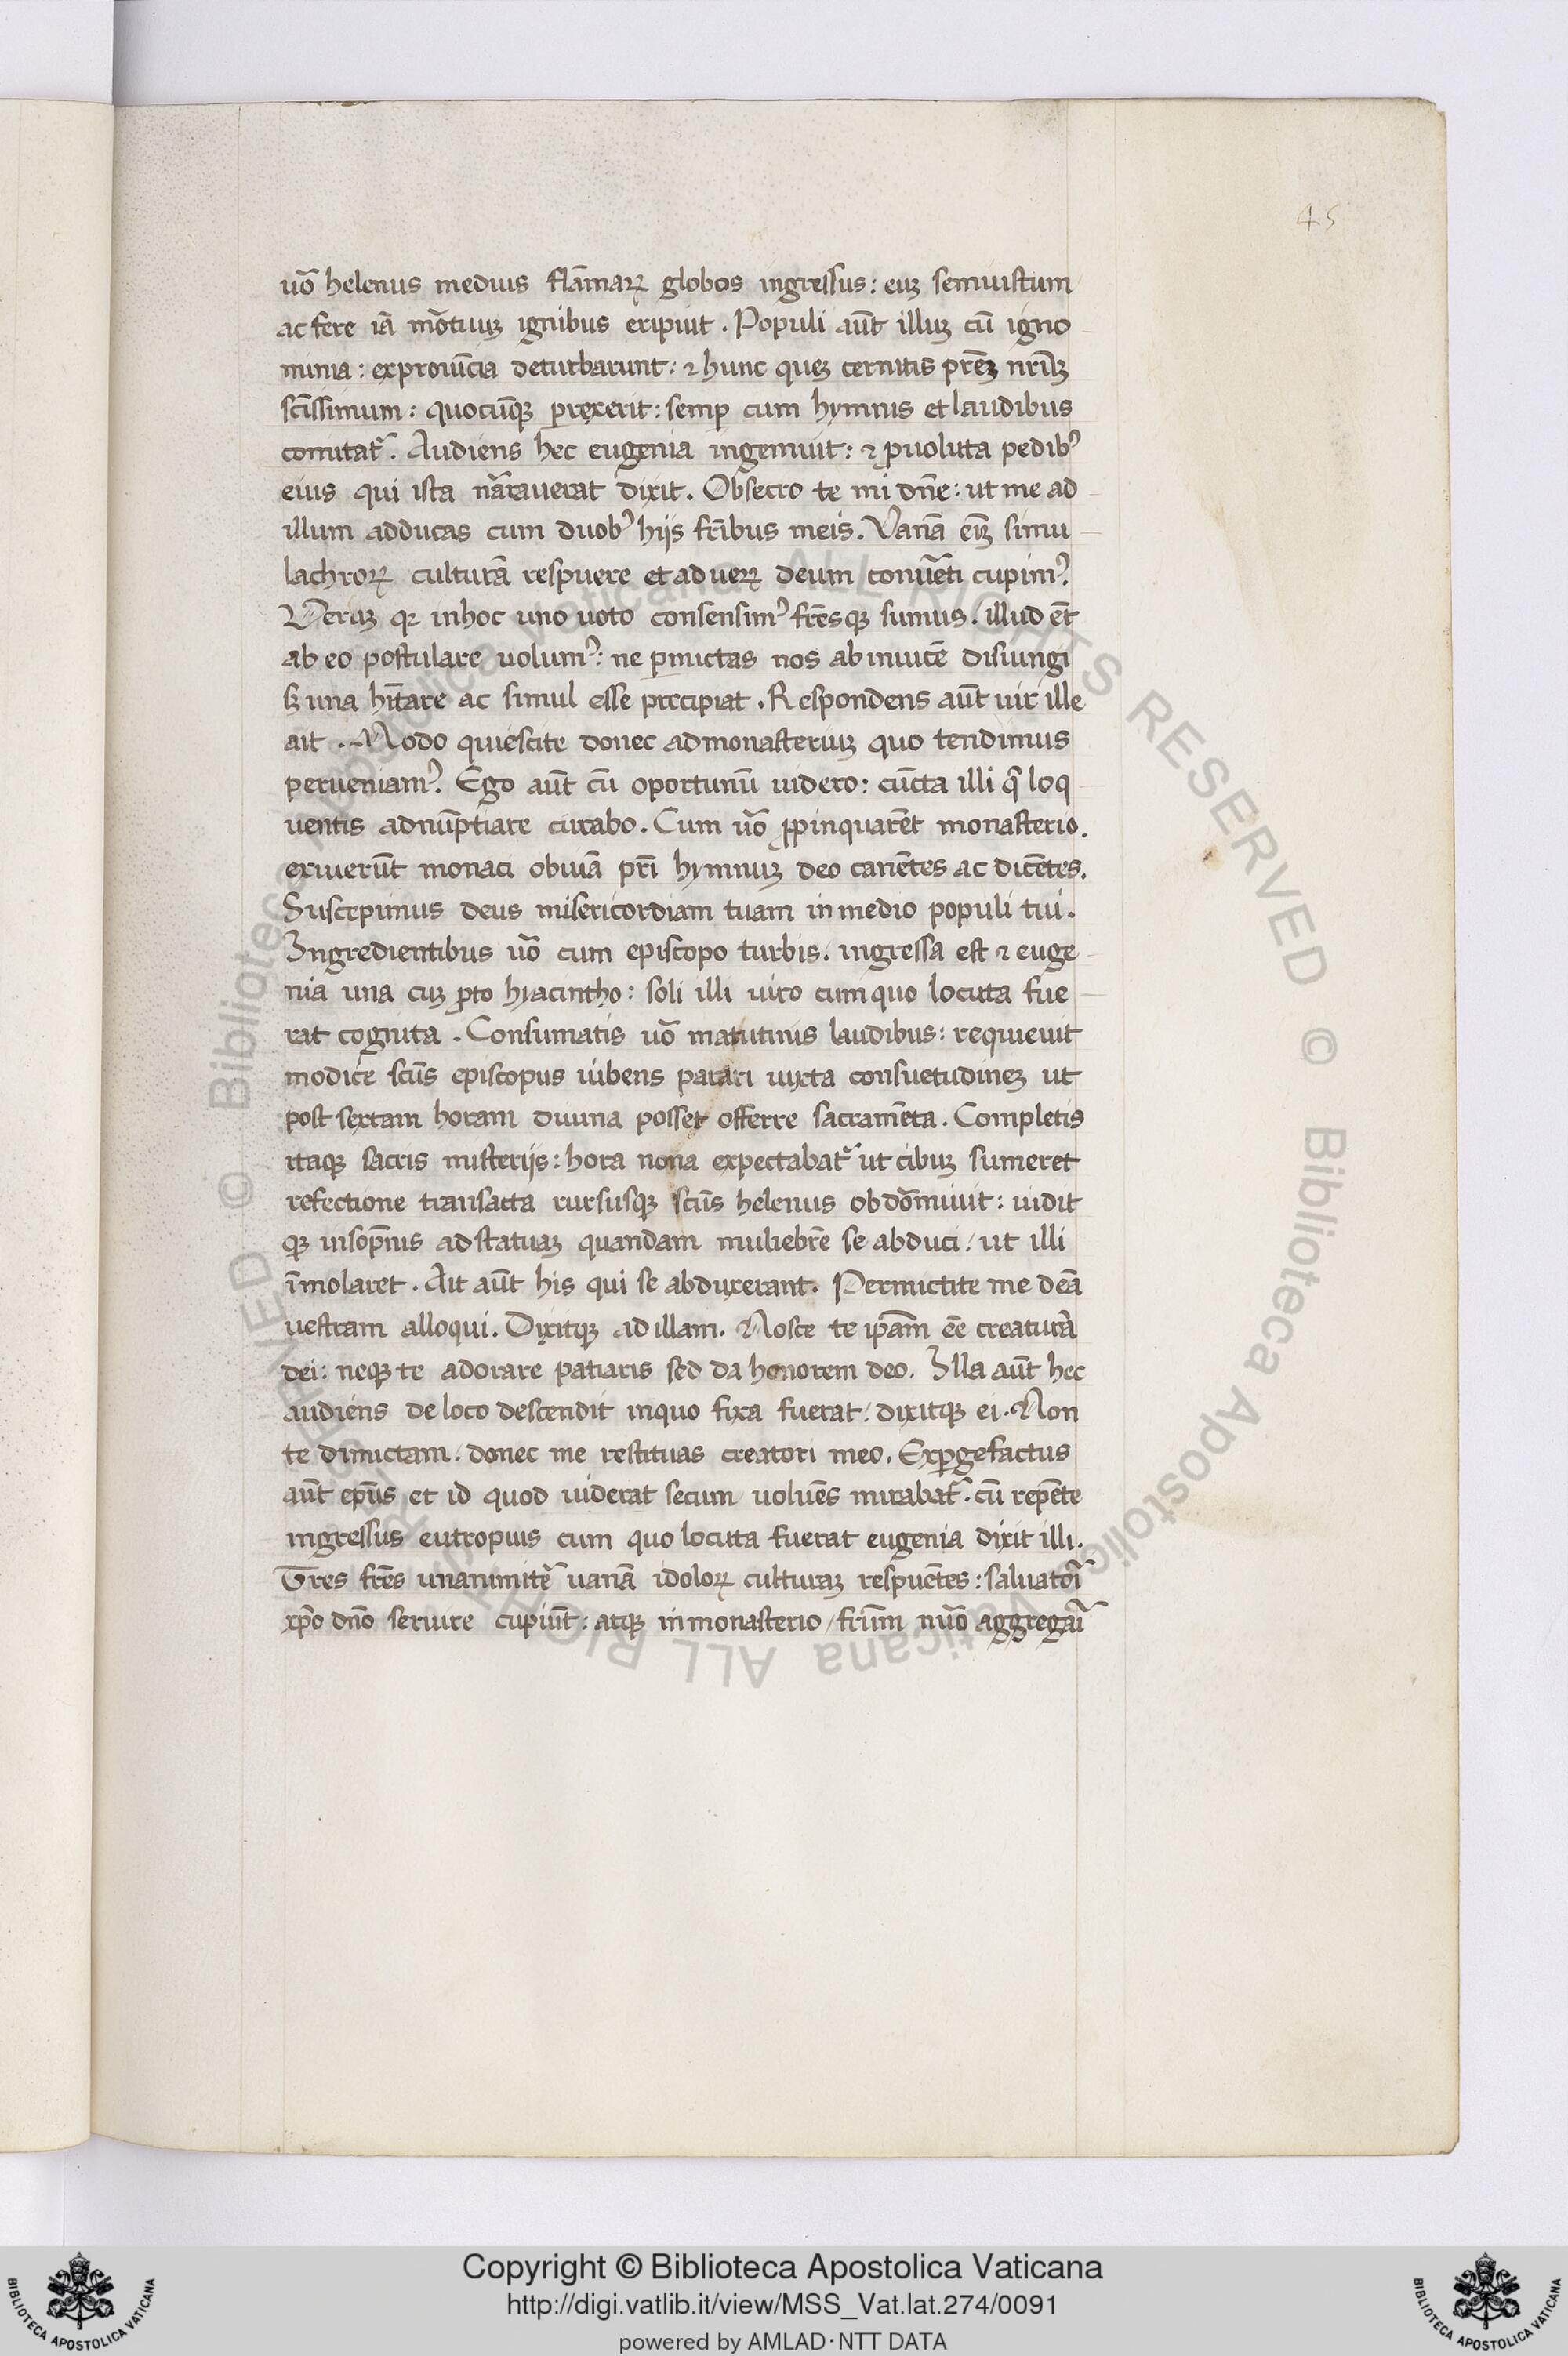 45
uo᷃ helenus medius fla᷃maꝝ globos ingressus: euꝫ semiustum
ac fere ia᷃ mo᷃tuuꝫ ignibus eripiuit. Populi au᷃t illuꝫ cu᷃ igno
minia: exprouı᷃cia deturbarunt: ⁊ hunc queꝫ cernitis pre᷃ꝫ nr᷃uꝫ
sc᷃issimum: quocu᷃qꝫ perrexerit: semꝑ cum hymnis et laudibus
comitat᷑. Audiens hec eugenia ingemuit: ⁊ ꝓuoluta pedibꝰ
eius qui ista na᷃rauerat dixit. Obsecro te mi dn᷃e: ut me ad
illum adducas cum duobꝰ hijs fr᷃ibus meis. Vana᷃ eı᷃ꝫ simu
lachroꝝ cultura᷃ respuere et ad ueꝝ deum conue᷃ti cupimꝰ.
Veruꝫ qꝛ in hoc uno uoto consensimꝰ fr᷃esqꝫ sumus. illud et᷃
ab eo postulare uolumꝰ: ne ꝑmictas nos ab inuice᷃ disiungi
sꝫ una hı᷃tare ac simul esse precipiat. Respondens au᷃t uir ille
ait. Modo quiescite donec ad monasteriuꝫ quo tendimus
perueniamꝰ. Ego au᷃t cu᷃ oportunu᷃ uidero: cu᷃cta illi q᷃ loq
uentis adnu᷃ptiare curabo. Cum uo᷃ ꝓpinquare᷃t monasterio.
exiueru᷃t monaci obuia᷃ pr᷃i hymnuꝫ deo cane᷃tes ac dice᷃tes.
Suscepimus deus misericordiam tuam in medio populi tui.
Ingredientibus uo᷃ cum episcopo turbis. ingressa est ⁊ euge
nia una cuꝫ ꝓto hyacintho: soli illi uiro cum quo locuta fue
rat cognita. Consumatis uo᷃ matutinis laudibus: requieuit
modice sc᷃us episcopus iubens parari iuxta consuetudineꝫ ut
post sextam horam diuina posset offerre sacrame᷃ta. Completis
itaqꝫ sacris misterijs: hora nona expectabat᷑ ut cibuꝫ sumeret
refectione transacta rursusqꝫ sc᷃us helenus obdo᷃miuit: uidit
qꝫ in sop᷃nis ad statuaꝫ quandam muliebre᷃ se abduci / ut illi
ı᷃molaret. Ait au᷃t his qui se abduxerant. Permictite me dea᷃
uestram alloqui. Dixitqꝫ ad illam. Nosce te ip᷃am ee᷃ creatura᷃
dei: neqꝫ te adorare patiaris sed da honorem deo. Illa au᷃t hec
audiens de loco descendit in quo fixa fuerat / dixitqꝫ ei. Non
te dimictam / donec me restituas creatori meo. Exꝑgefactus
au᷃t ep᷃us et id quod uiderat secum uolue᷃s mirabat᷑. cu᷃ repe᷃te
ingressus eutropius cum quo locuta fuerat eugenia dixit illi.
Tres fr᷃es unanimite᷑ uana᷃ idoloꝝ culturaꝫ respue᷃tes: saluatori᷑
xp᷃o dn᷃o seruire cupiu᷃t: atqꝫ in monasterio / fr᷃um nu᷃o aggregari᷑
Copyright © Biblioteca Apostolica Vaticana
http://digi.vatlib.it/view/MSS_Vat.lat.274/0091
powered by AMLAD·NTT DATA
BIBLIOTECA APOSTOLICA VATICANA
BIBLIOTECA APOSTOLICA VATICANA